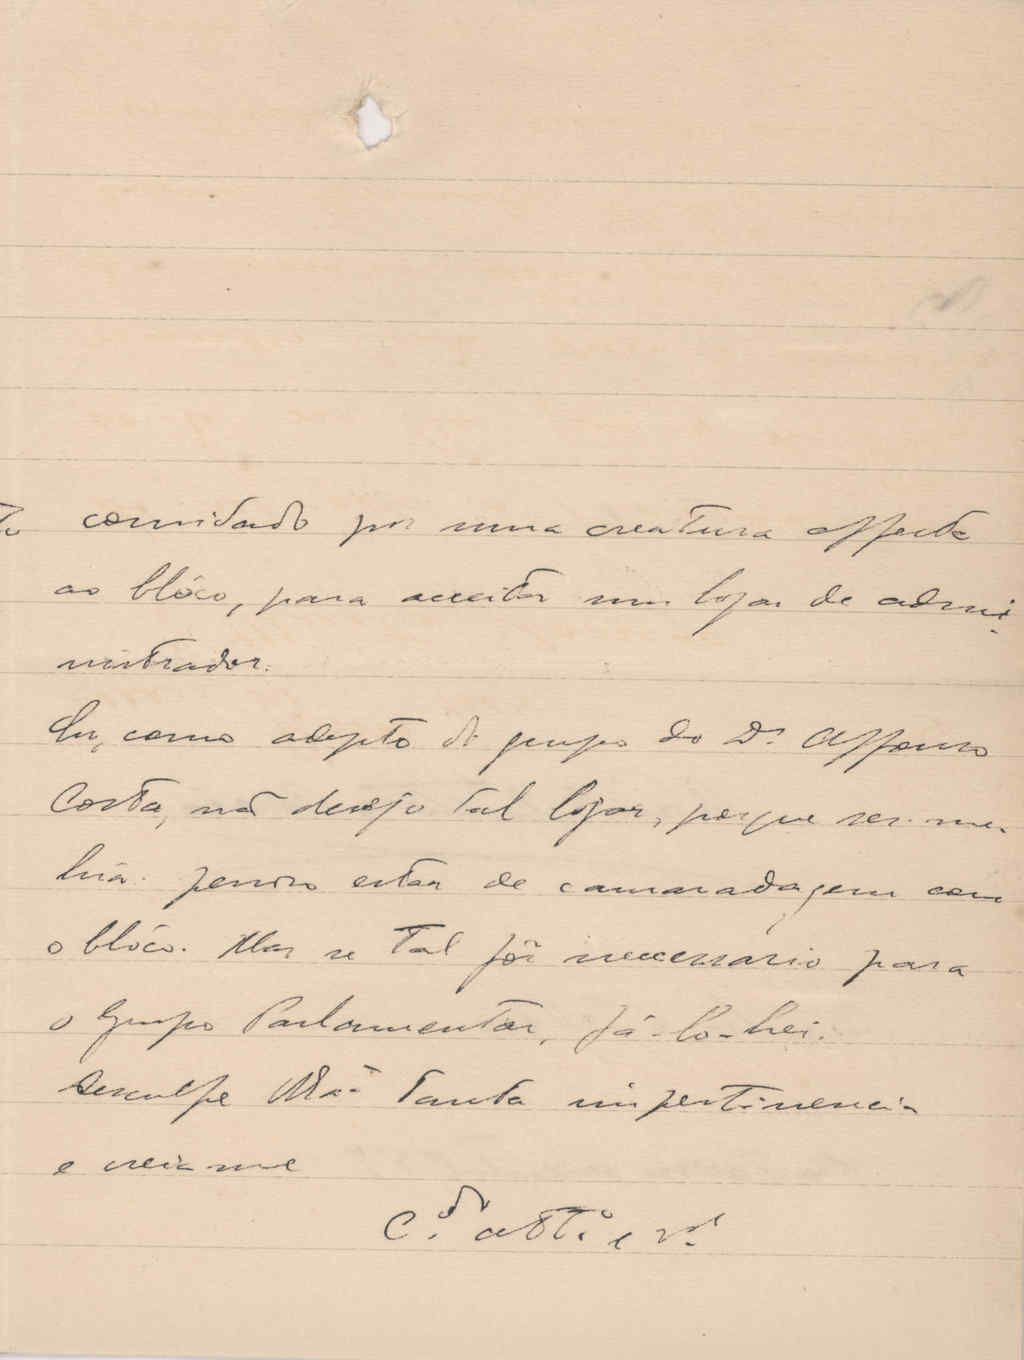 convidado por uma creatura affecta
ao blóco, para acceitar um logar de admi-
nistrador.
Eu, como adepto do grupo do Dr. Affonso
Costa, não desejo tal logar, porque ser-me-
hia penoso estar de camaradagem com
o blóco. Mas se tal fôr necessario para
o Grupo Parlamentar, fá-lo-hei.
Desculpe tanta impertinencia
e creia-me
Cdo. atto. e